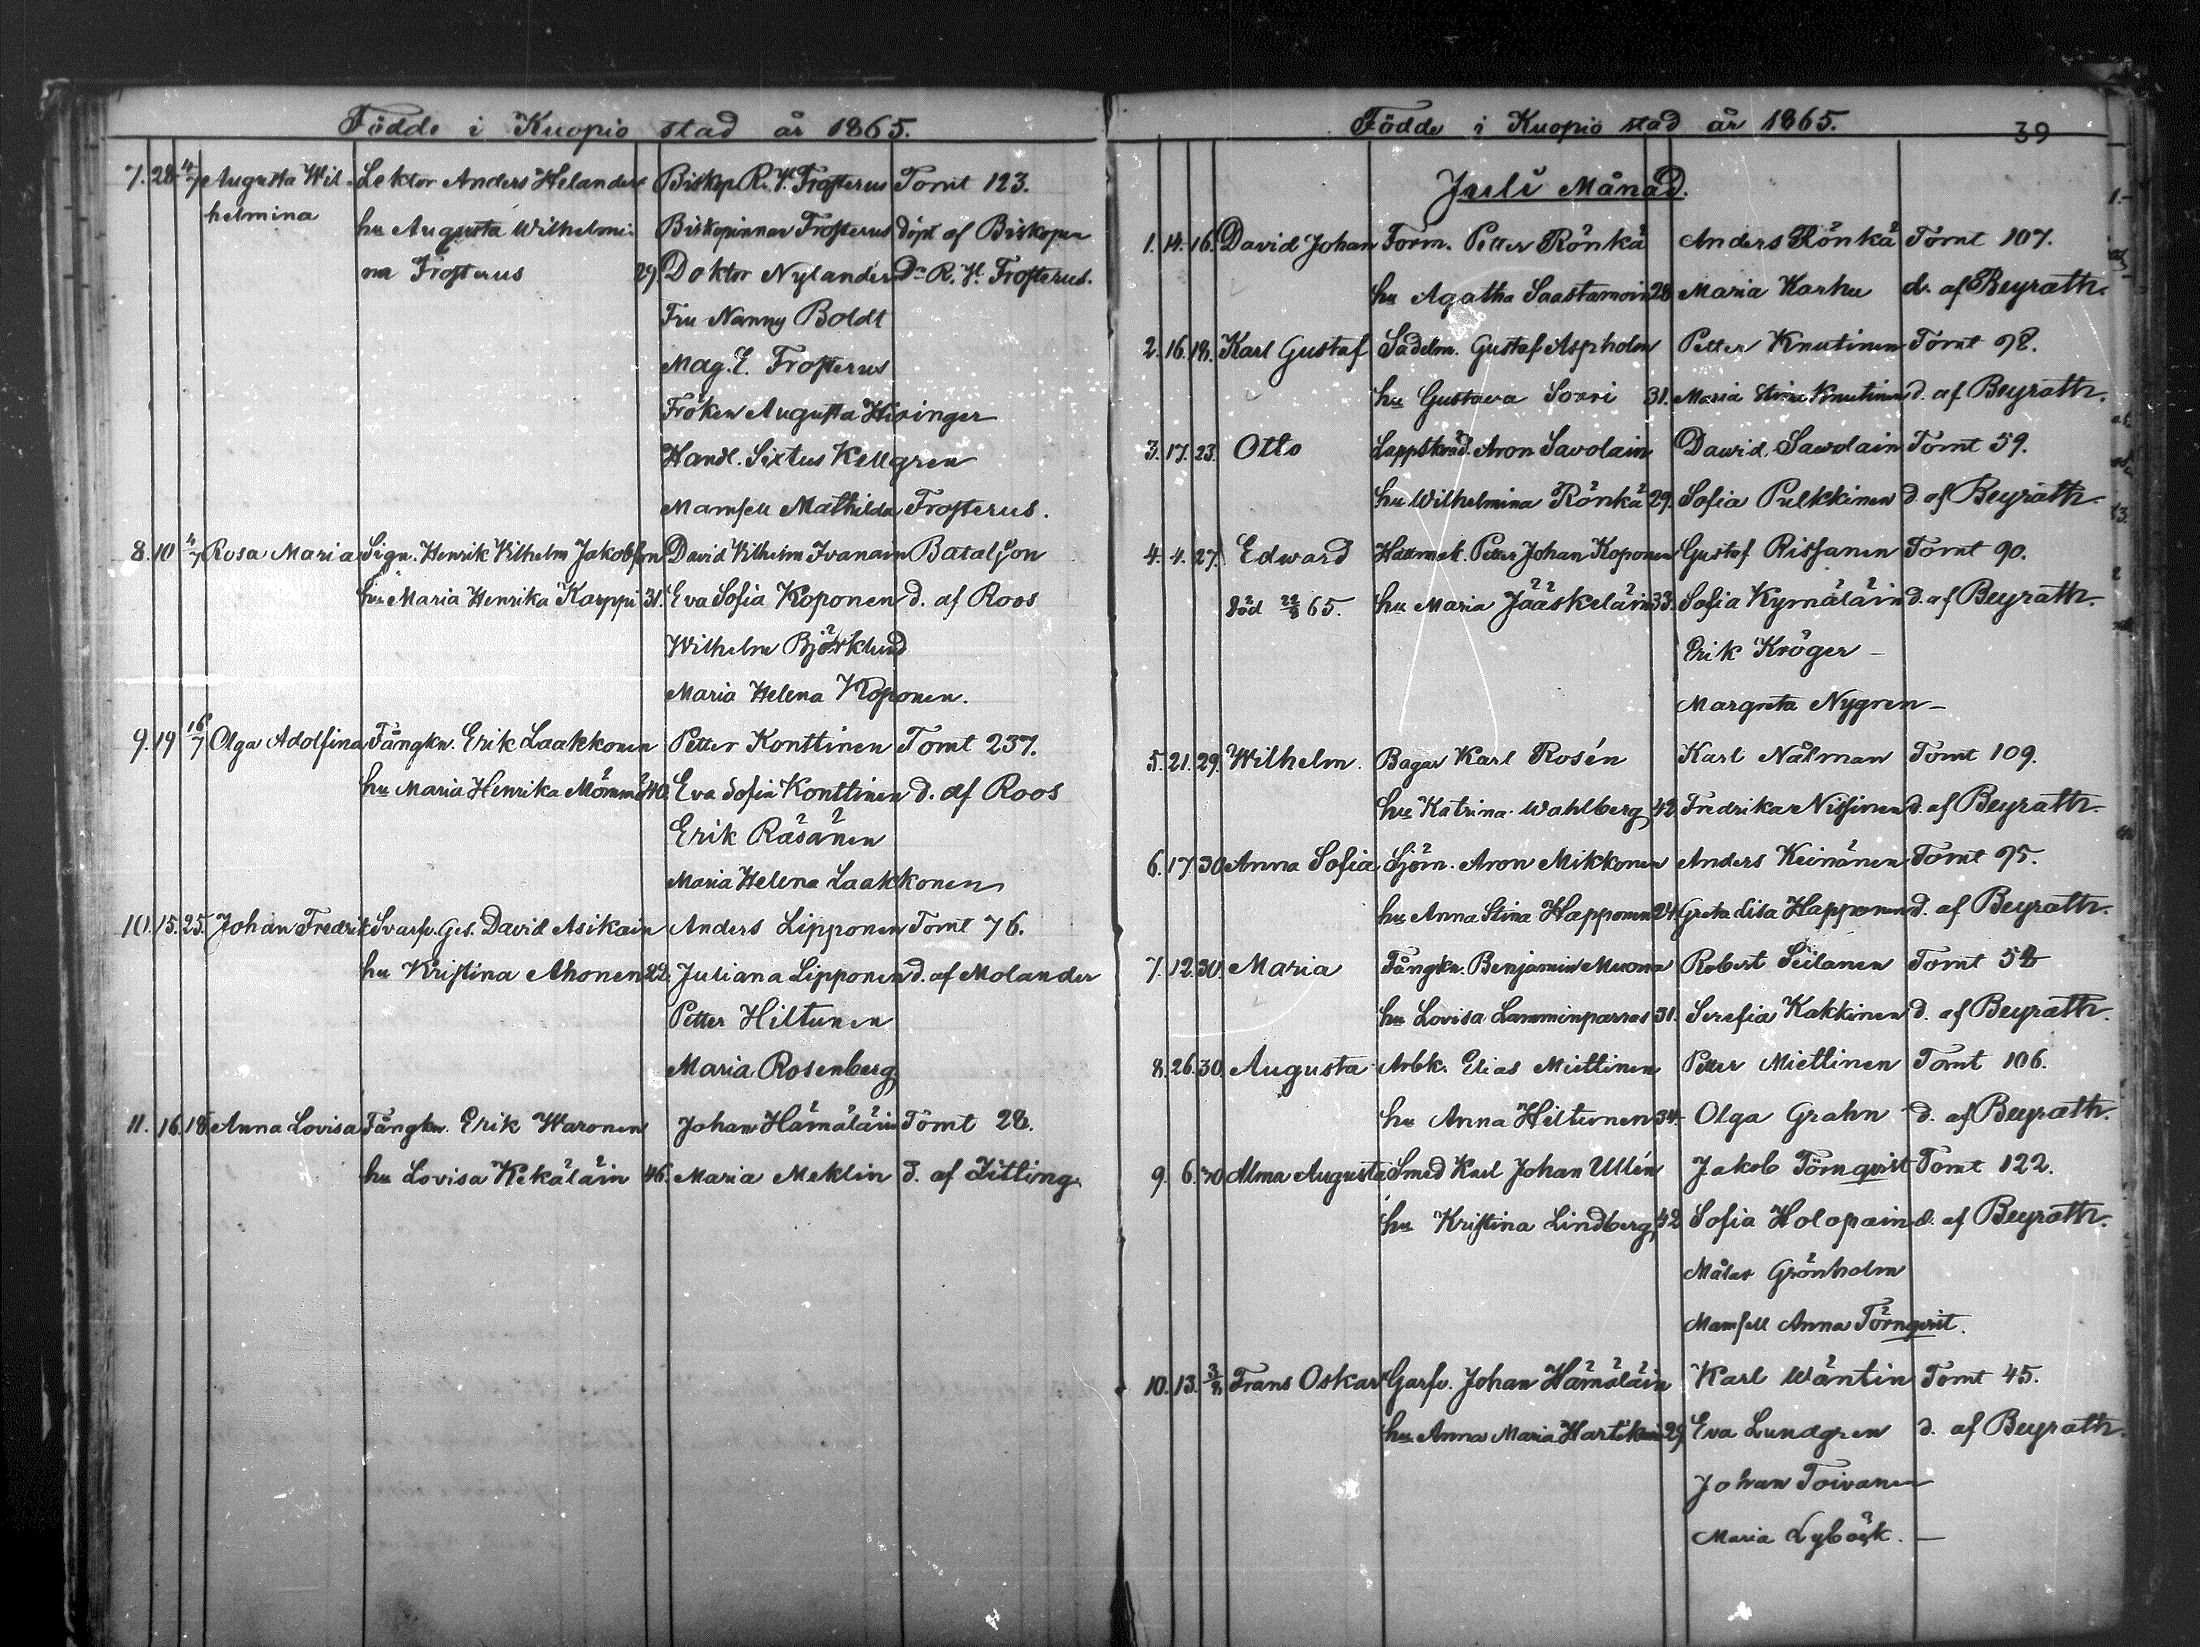 Födde i Kuopio stad år 1865.
7. 28. 4/7 Augusta Wil- Lektor Anders Helander Biskop R. H. Frosterus Tomt 123.
helmina hu Augusta Wilhelmi- Biskopinnan Frosterus döpt af Biskopen
na Frosterus 29. Doktor Nylander Dr R. H. Frosterus.
Fru Nanny Boldt
Mag. E. Frosterus
Fröken Augusta Hisinger
Handl. Sixtus Kellgren
Mamsell Mathilda Frosterus.
8. 10 4/7 Rosa Maria Sign. Henrik Vilhelm Jakobson David Vilhelm Ivanain Bataljon
hu Maria Henrika Karppi 31. Eva Sofia Koponen d. af Roos
Wilhelm Björklund
Maria Helena Koponen.
9. 19 16/7 Olga Adolfina Fångkn. Erik Laakkonen Petter Konttinen Tomt 237.
hu Maria Henrika Mömmö 40. Eva Sofia Konttinen d. af Roos
Erik Räsänen
Maria Helena Laakkonen
10. 15. 25. Johan Fredrik Svarfv. Ges. David Asikain Anders Lipponen Tomt 76.
hu Kristina Ahonen 22. Juliana Lipponen d. af Molander
Petter Hiltunen
Maria Rosenberg
11. 16. 18. Anna Lovisa Fångkn. Erik Waronen Johan Hämäläin Tomt 28.
hu Lovisa Kekäläin 46. Maria Meklin d. af Zitting.
Födde i Kuopio stad år 1865. 39
Juli Månad.
1. 14. 16. David Johan Form. Petter Rönkä Anders Rönkä Tomt 107.
hu Agatha Saastamoin 28 Maria Karhu d. af Beyrath.
2. 16. 18. Karl Gustaf Sadelm. Gustaf Aspholm Petter Knutinen Tomt 98.
hu Gustava Sorri 31. Maria Stina Knutinen d. af Beyrath.
3. 17. 23. Otto Lappskräd. Aron Savolain Dawid Sawolain Tomt 59.
hu Wilhelmina Rönkä 29. Sofia Pulkkinen d. af Beyrath
4. 4. 27. Edward Hattmak. Petter Johan Koponen Gustaf Rissanen Tomt 90.
död 22/8 65. hu Maria Jääskeläin 33. Sofia Kymäläin d. af Beyrath.
Erik Kröger —
Margreta Nygren —
5. 21. 29. Wilhelm. Bagar Karl Rosén Karl Nälman Tomt 109.
hu Katrina Wahlberg 42 Fredrika Nissinen d. af Beyrath.
6. 17. 30 Anna Sofia Sjöm. Aron Mikkonen Anders Keinänen Tomt 95.
hu Anna Stina Happonen 24 Greta Lisa Happonen d. af Beyrath.
7. 12. 30. Maria Fångkn. Benjamin Muona Robert Seilanen Tomt
hu Lovisa Lamminparras 31. Serefia Kakkinen d. af Beyrath.
8. 26. 30. Augusta Arbk. Elias Miettinen Petter Miettinen Tomt 106.
hu Anna Hiltunen 34. Olga Grahn d. af Beyrath.
9. 6. 30 Alma Augusta Smed Karl Johan Ullén Jakob Törnqvist Tomt 122.
hu Kristina Lindberg 42 Sofia Holopain d. af Beyrath.
Målar Grönholm
Mamsell Anna Törnqvist.
10. 13. 3/8 Frans Oskar Garfv. Johan Hämäläin Karl Wäntin Tomt 45.
hu Anna Maria Hartikain 29. Eva Lundgren d. af Beyrath.
Johan Toivanen
Maria Lybäck. —